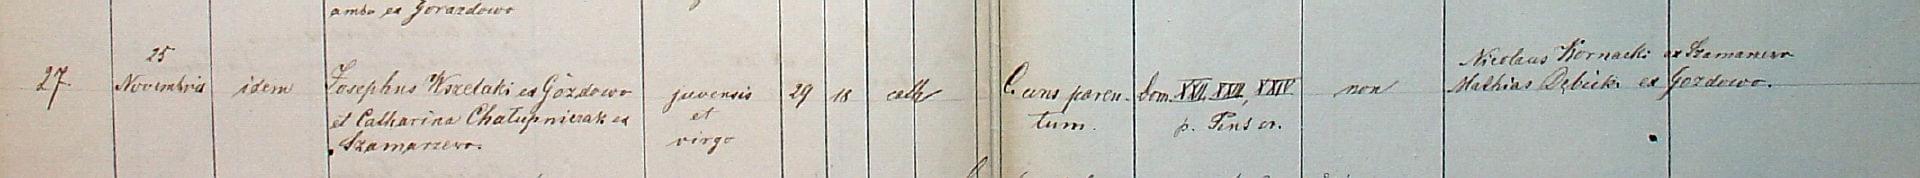 ambo ex Gorazdowo
27.
25
Novembris
idem
Josephus Wszelaki ex Gozdowo
et Catharina Chałupniczak ex
Szamarzewo.
juvenis
et
virgo
29
18
cath
C. cons paren-
tum.
Dom. XXII, XXIII, XXIV
p. Pent er.
non
Nicolaus Kornacki ex Szamarzewo
Mathias Dębicki ex Gozdowo.